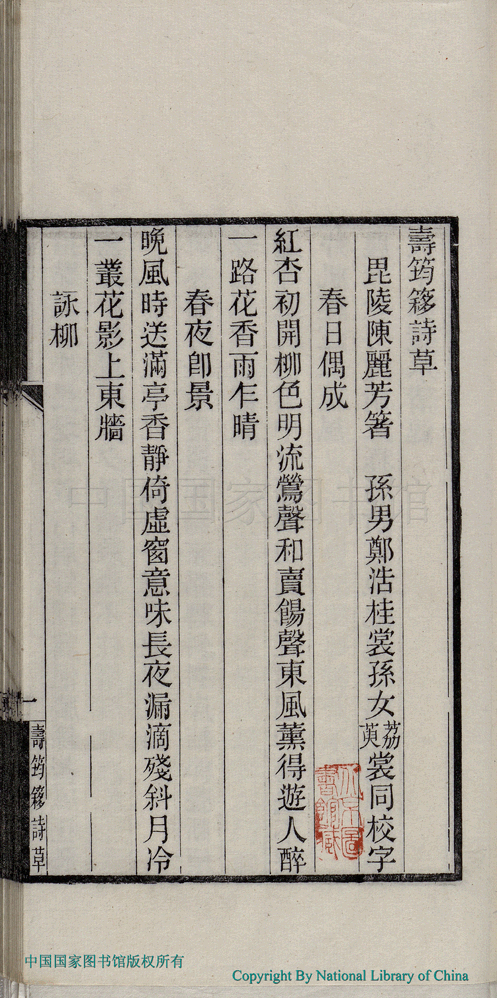 壽筠簃詩草
毘陵陳麗芳箸　孫男鄭浩桂裳孫女荔萸裳同校字
春日偶成
紅杏初開柳色明流鶯聲和賣餳聲東風薰得遊人醉
一路花香雨乍晴
春夜卽景
晚風時送滿亭香靜倚虛窗意味長夜漏滴殘斜月冷
一叢花影上東牆
詠柳
一
壽筠簃詩草
中国国家图书馆
中国国家图书馆版权所有
Copyright By National Library of China